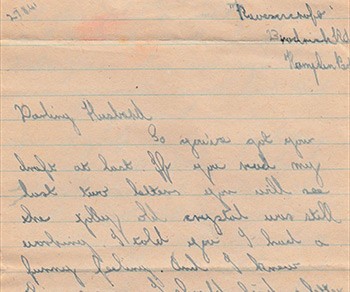 "Ravenscroft"
Brodrick Rd
Hampden
Darling Husband
So you've got your
draft at last. If you read my
last two letters you will see
the jolly old crystal was still
working I told you I had a
funny feeling. And I knew
letter